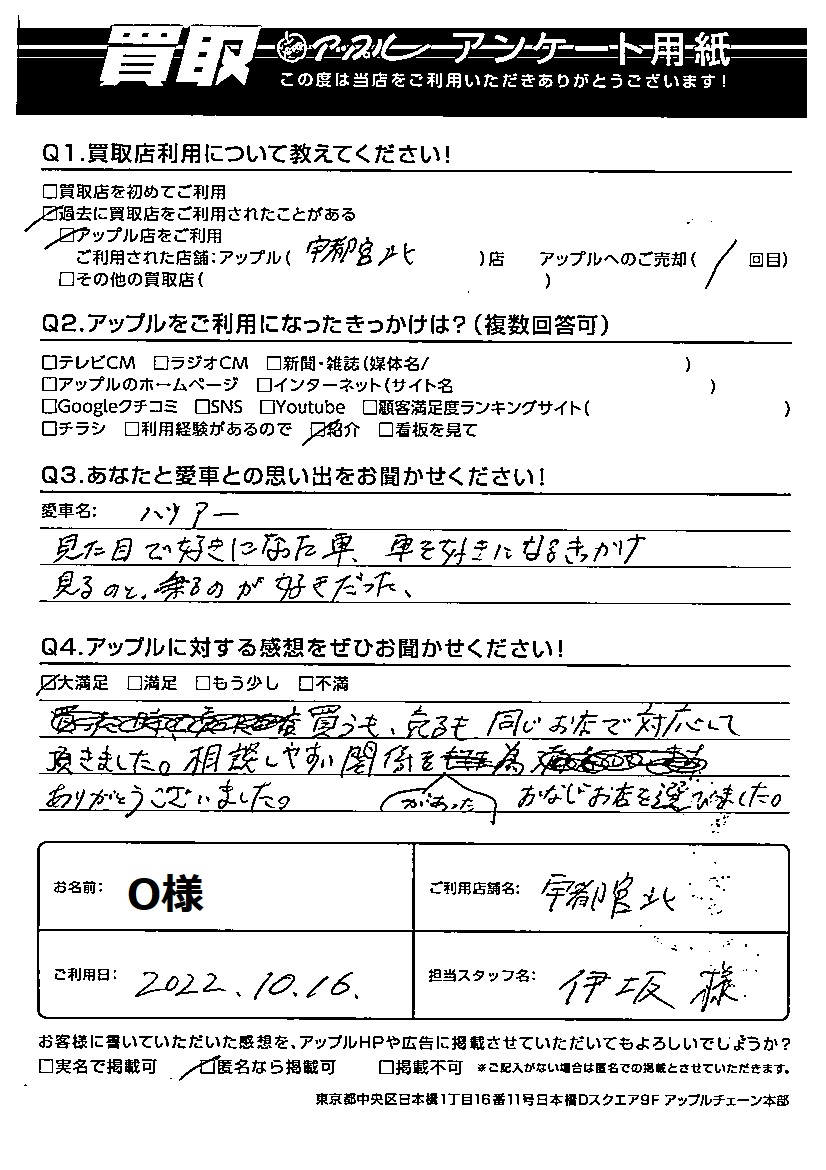 買取 アップル アンケート用紙
この度は当店をご利用いただきありがとうございます!
Q1.買取店利用について教えてください!
□買取店を初めてご利用
☑過去に買取店をご利用されたことがある
☑アップル店をご利用
ご利用された店舗:アップル( 宇都宮北 )店 アップルへのご売却( / 回目)
□その他の買取店( )
Q2.アップルをご利用になったきっかけは?(複数回答可)
□テレビCM □ラジオCM □新聞・雑誌(媒体名/ )
□アップルのホームページ □インターネット(サイト名 )
□Googleクチコミ □SNS □Youtube □顧客満足度ランキングサイト( )
□チラシ □利用経験があるので ☑紹介 □看板を見て
Q3.あなたと愛車との思い出をお聞かせください!
愛車名: ハリアー
見た目で好きになった車、車を好きになるきっかけ
見るのと、乗るのが好きだった、
Q4.アップルに対する感想をぜひお聞かせください!
☑大満足 □満足 □もう少し □不満
買うも、売るも同じお店で対応して
頂きました。相談しやすい関係 為
ありがとうございました。 があった おなじお店を選びました。
お名前: O様 ご利用店舗名: 宇都宮北
ご利用日: 2022.10.16. 担当スタッフ名: 伊坂 様
お客様に書いていただいた感想を、アップルHPや広告に掲載させていただいてもよろしいでしょうか?
□実名で掲載可 ☑匿名なら掲載可 □掲載不可 ※ご記入がない場合は匿名での掲載とさせていただきます。
東京都中央区日本橋1丁目16番11号日本橋Dスクエア9F アップルチェーン本部